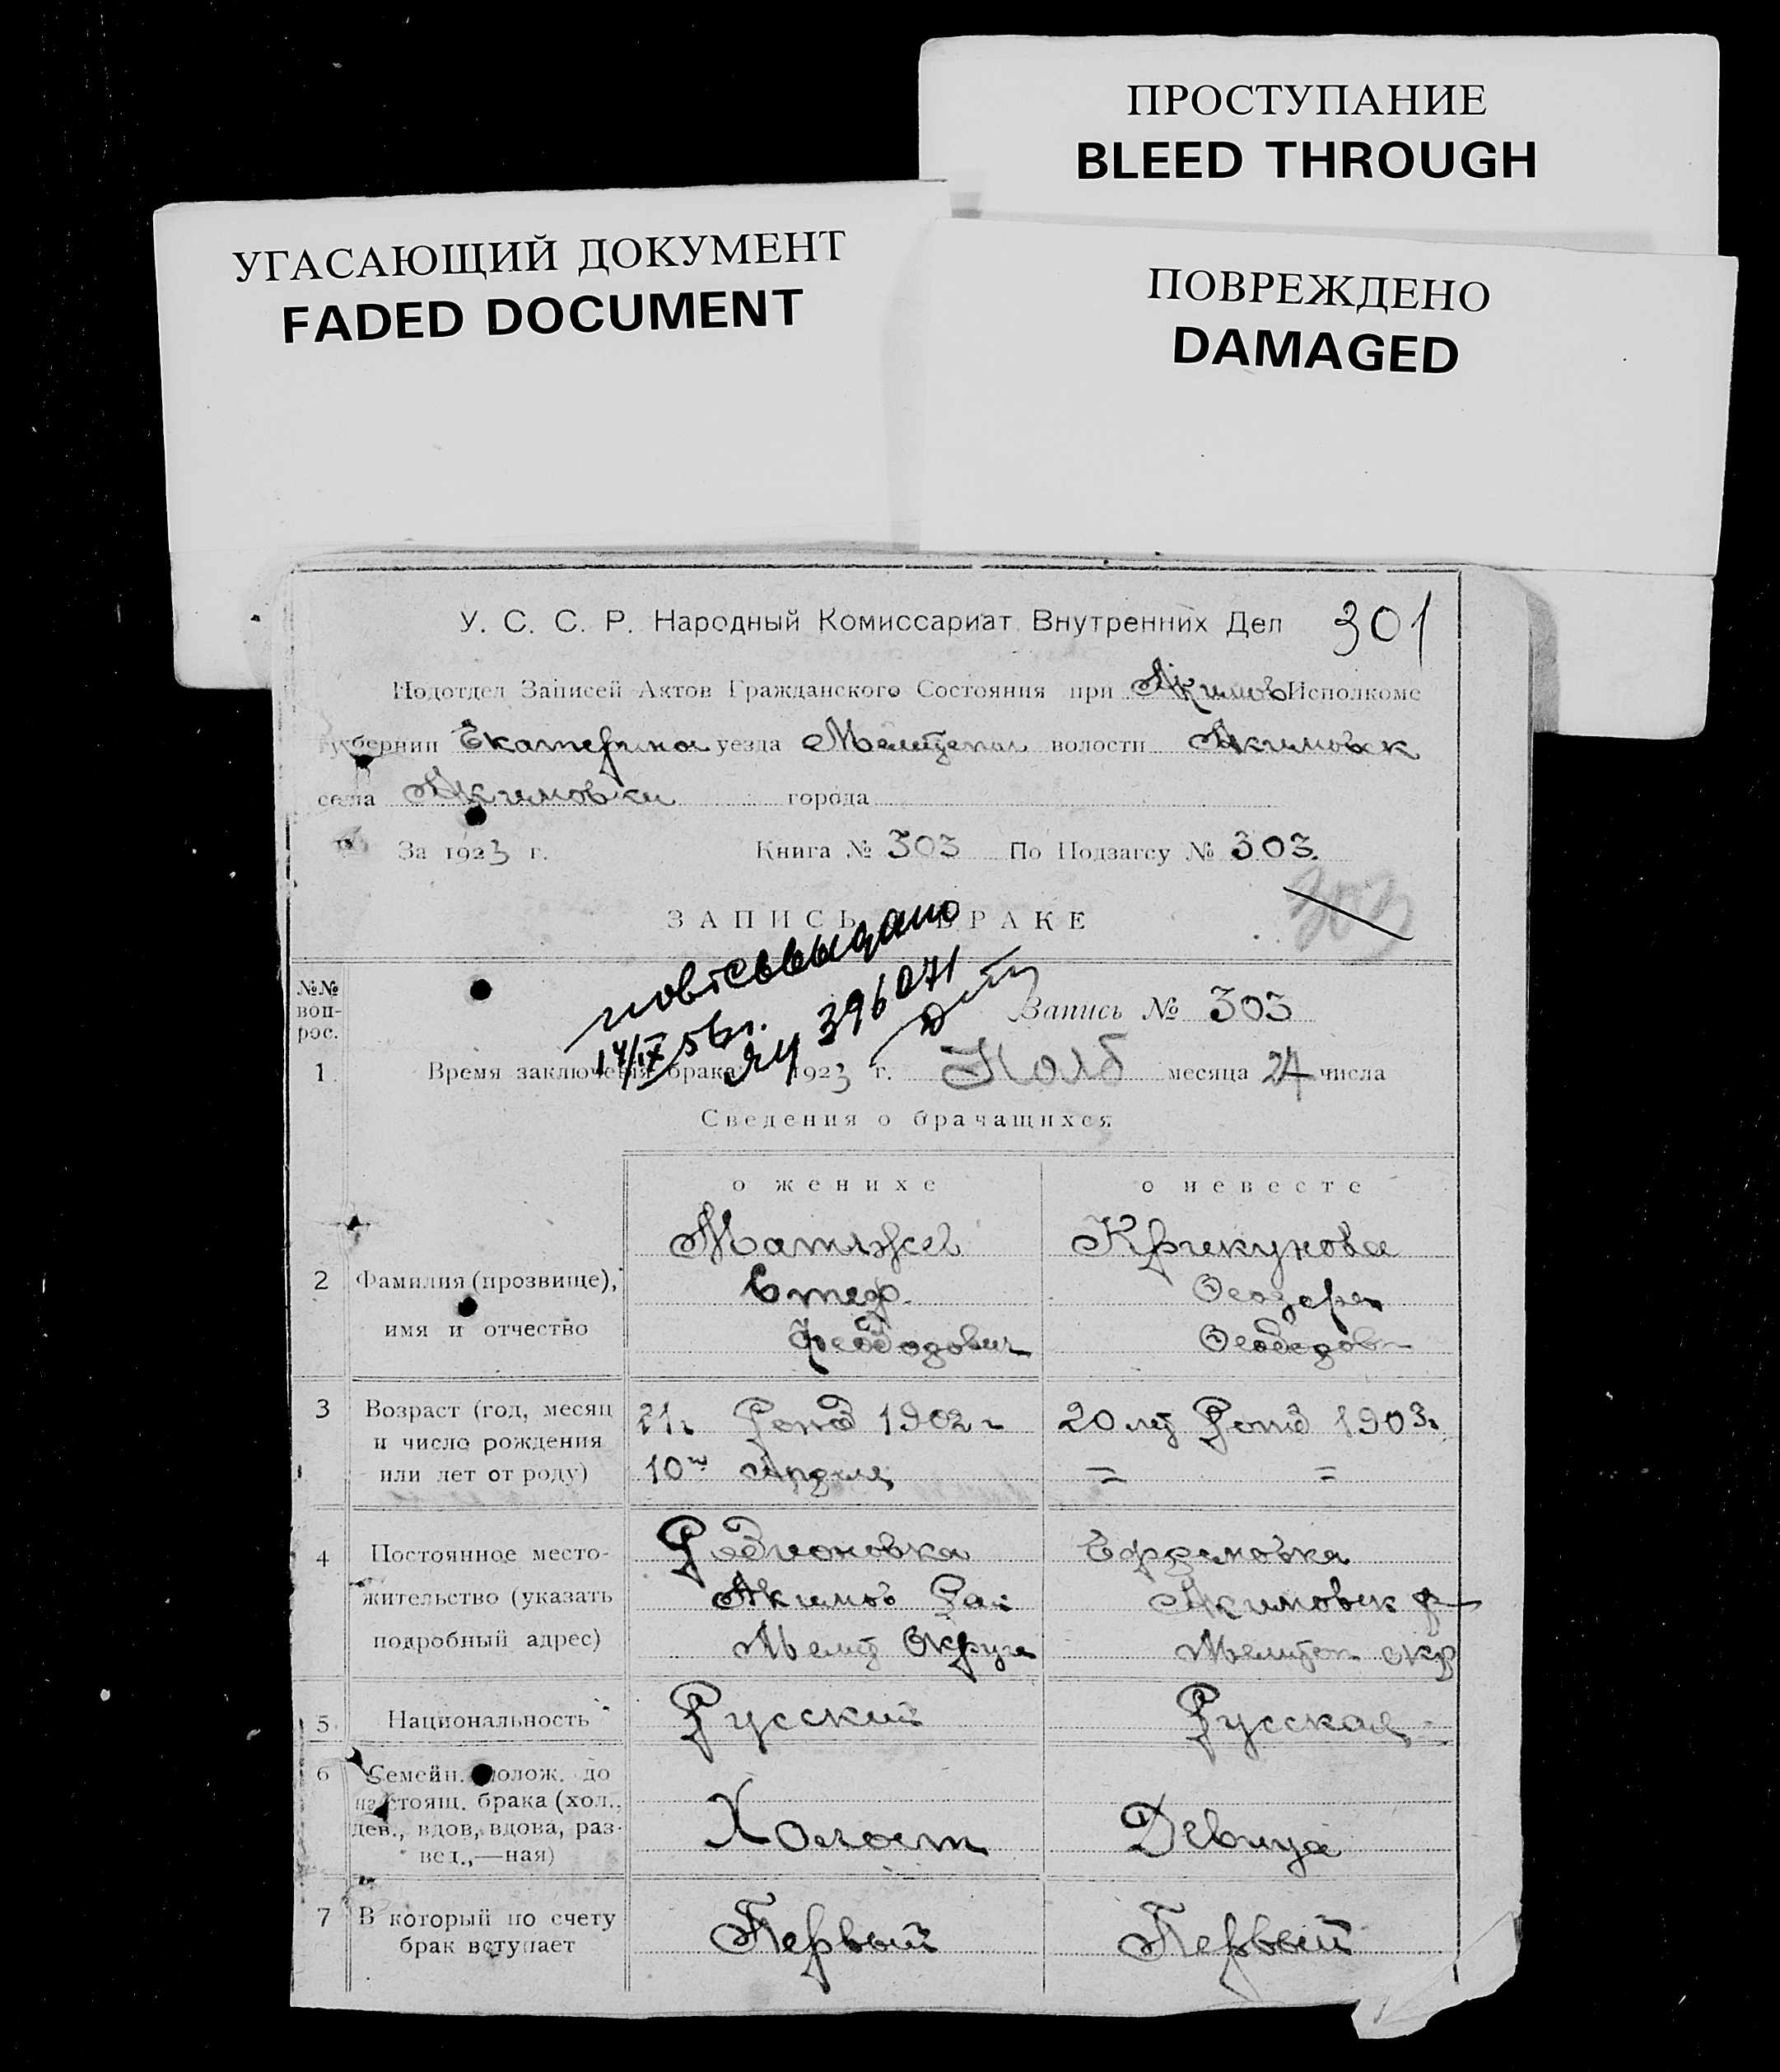 ПРОСТУПАНИЕ
BLEED THROUGH
УГАСАЮЩИЙ ДОКУМЕНТ
FADED DOCUMENT
ПОВРЕЖДЕНО
DAMAGED
У. С. С. Р. Народный Комиссариат Внутренних Дел 301
Подотдел Записей Актов Гражданского Состояния при Акимов Исполкоме
Губернии Екатерино уезда Мелитопол волости Акимовск
села Акимовки города
За 1923 г. Книга № 303 По Подзагсу № 303.
ЗАПИСЬ БРАКЕ 303
выдано
14/IX 56 г. 396071
№№ воп- рос.
Запись № 303
1 Время заключения брака 1923 г. Нояб месяца 24 числа
Сведения о брачащихся
о женихе о невесте
Крикунова
2 Фамилия (прозвище), Стеф.
имя и отчество
3 Возраст (год, месяц 21 г Рожд 1902 г 20 лет Рожд 1903 г
и число рождения 10го Апреля = =
или лет от роду)
4 Постоянное место- Родионовка Ефремовка
жительство (указать Акимов Рай Акимовск р
подробный адрес) Мелит Округа Мелитоп окр
5 Национальность Русский Русская
6 Семейн. полож. до
настоящ. брака (хол.,
дев., вдов, вдова, раз- Холост Девица
вед.,—ная)
7 В который по счету Первый Первый
брак вступает